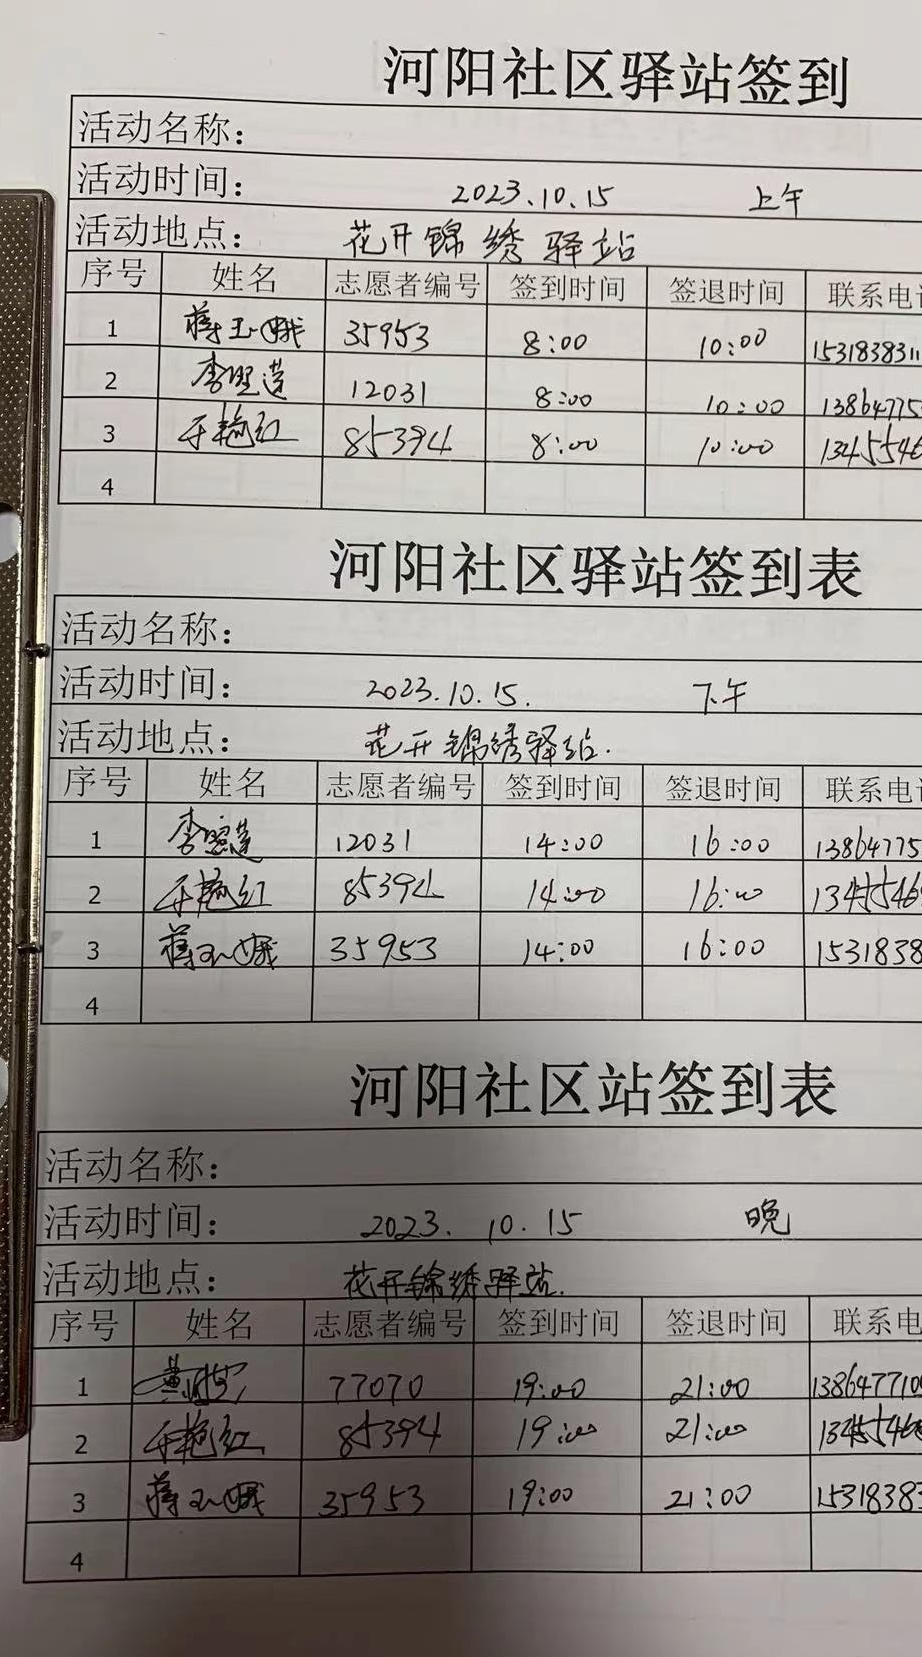 河阳社区驿站签到
活动名称：
活动时间： 2023.10.15 上午
活动地点： 花开锦绣驿站
序号 姓名 志愿者编号 签到时间 签退时间 联系电
1 蒋玉娥 35953 8:00 10:00 1531838311
2 李照莲 12031 8:00 10:00 13864775
3 于艳红 85394 8:00 10:00 1345546
4
河阳社区驿站签到表
活动名称：
活动时间： 2023.10.15. 下午
活动地点： 花开锦绣驿站.
序号 姓名 志愿者编号 签到时间 签退时间 联系电
1 李照莲 12031 14:00 16:00 13864775
2 于艳红 85394 14:00 16:00 1345546
3 蒋玉娥 35953 14:00 16:00 1531838
4
河阳社区站签到表
活动名称：
活动时间： 2023.10.15 晚
活动地点： 花开锦绣驿站.
序号 姓名 志愿者编号 签到时间 签退时间 联系电
1 77070 19:00 21:00 138647710
2 于艳红 85394 19:00 21:00 1345546
3 蒋玉娥 35953 19:00 21:00 15318383
4